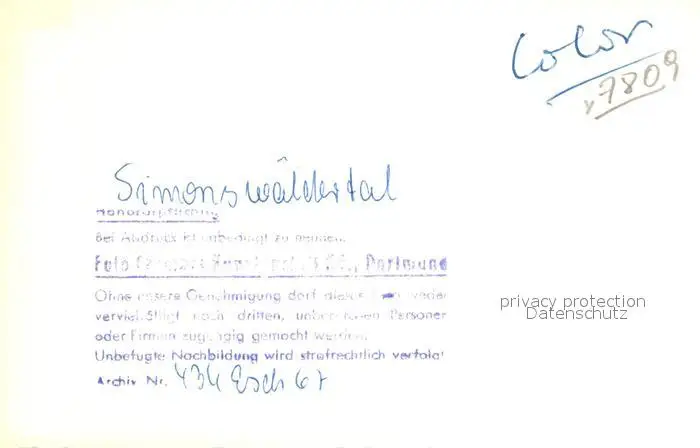 Color
7809
Simonswäldertal
Honorarpflichtig
Bei Abdruck ist unbedingt zu nennen:
Foto Dortmund
Ohne unsere Genehmigung darf dieses weder
vervielfältigt noch dritten, Personen
oder Firmen zugängig gemacht werden.
Unbefugte Nachbildung wird strafrechtlich verfolgt
Archiv Nr. 434 Esch 67
privacy protection
Datenschutz